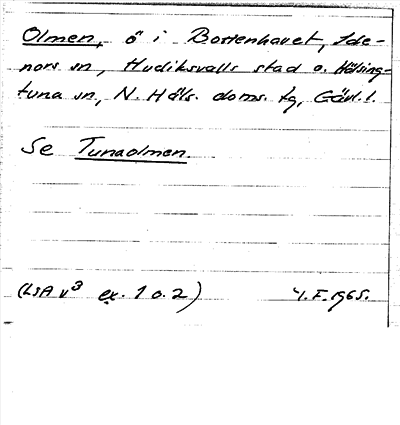 Olmen, ö i Bottenhavet, Ide-
nors sn, Hudiksvalls stad o. Hälsing-
tuna sn, N. Häls. doms. tg, Gävl. l.
Se Tunaolmen.
(LSA v3 ex. 1 o. 2) 4. F. 1965.